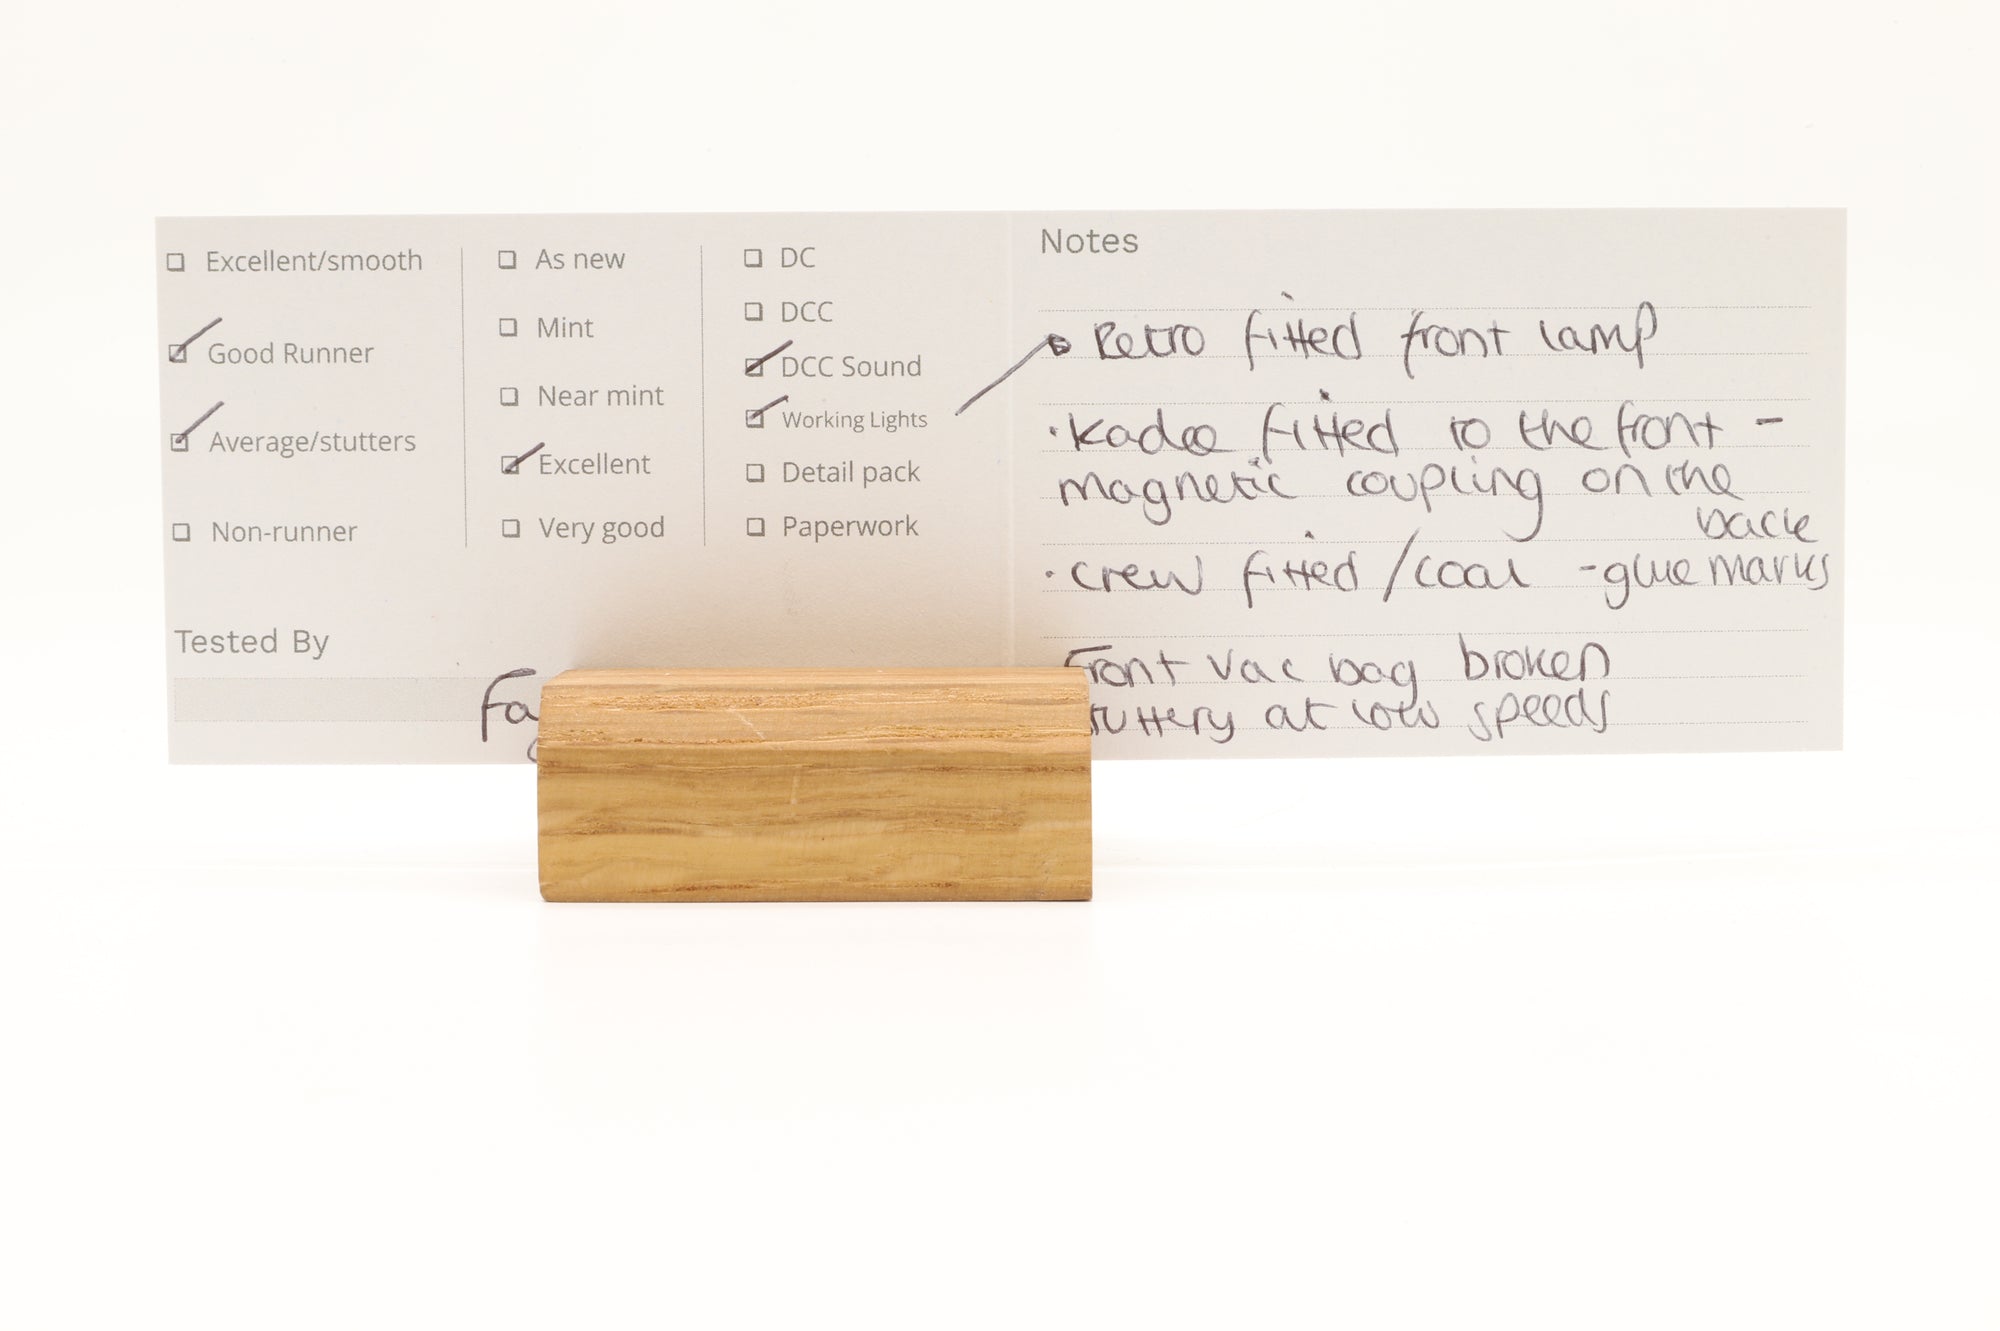 ☐ Excellent/smooth
☑ Good Runner
☑ Average/stutters
☐ Non-runner
☐ As new
☐ Mint
☐ Near mint
☑ Excellent
☐ Very good
☐ DC
☐ DCC
☑ DCC Sound
☑ Working Lights
☐ Detail pack
☐ Paperwork
Tested By
Notes
Retro fitted front lamp
· Kadee fitted to the front -
magnetic coupling on the
back
· crew fitted / coal - glue marks
Front vac bag broken
at low speeds